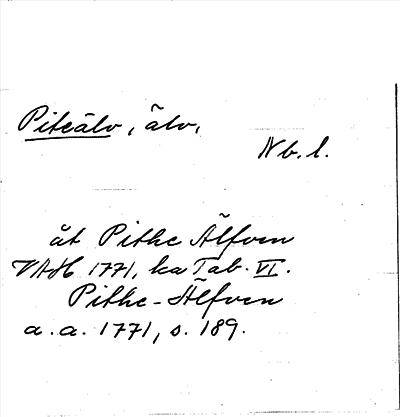 Piteälv, älv,
Nb. l.
åt Pithe Älfven
VAH 1771, ka Tab. VI.
Pithe-Älfven
a. a. 1771, s. 189.